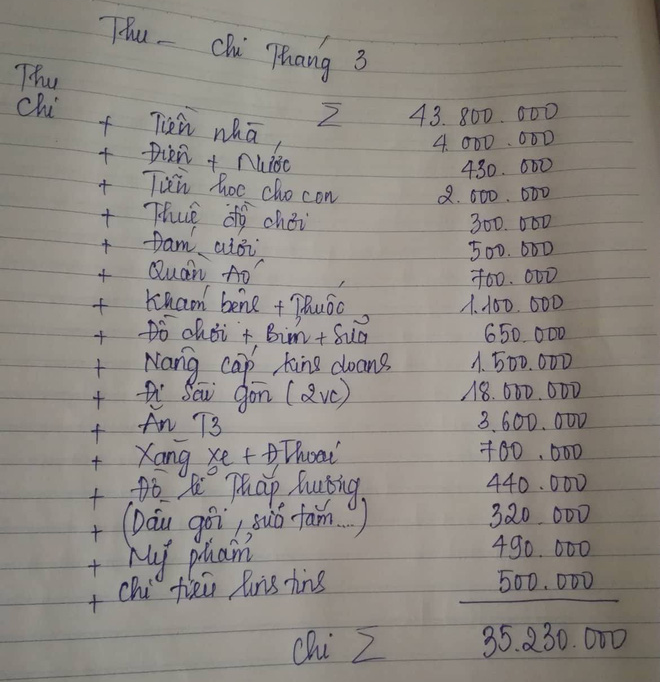 Thu - Chi Tháng 3
Thu Σ 43.800.000
Chi
+ Tiền nhà 4.000.000
+ Điện + Nước 430.000
+ Tiền học cho con 2.000.000
+ Thuê đồ chơi 300.000
+ Đám cưới 500.000
+ Quần Áo 700.000
+ Khám bệnh + Thuốc 1.100.000
+ Đồ chơi + Bỉm + Sữa 650.000
+ Nâng cấp kinh doanh 1.500.000
+ Đi Sài gòn (2vc) 18.000.000
+ Ăn T3 3.600.000
+ Xăng xe + ĐThoại 700.000
+ Đồ lễ Thắp hương 440.000
+ (Dầu gội, sữa tắm....) 320.000
+ Mỹ phẩm 490.000
+ Chi tiêu linh tinh 500.000
Chi Σ 35.230.000